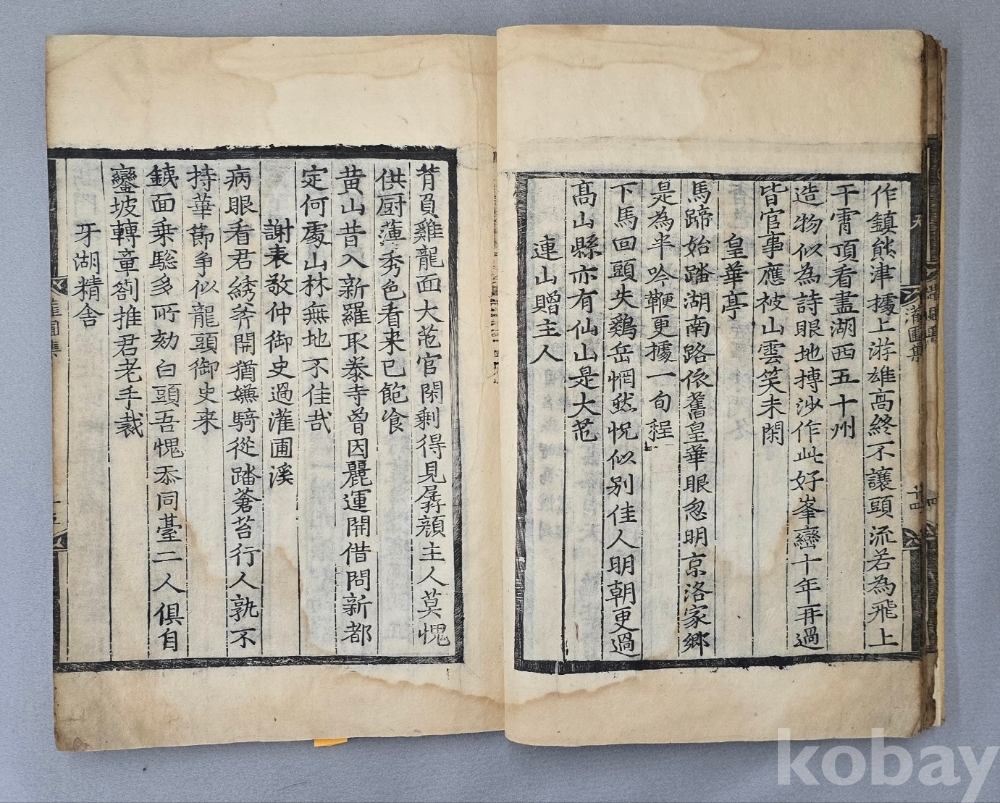 作鎮熊津據上游雄高終不讓頭流若為飛上
干霄頂看盡湖西五十州
造物似為詩眼地摶沙作此好峯巒十年再過
皆官事應被山雲笑未閑
皇華亭
馬蹄始踏湖南路依舊皇華眼忽明京洛家鄉
是為半吟鞭更據一旬程
下馬回頭失鷄岳惘然怳似別佳人明朝更過
高山縣亦有仙山是大芚
連山贈主人
背負雞龍面大芚官閑剩得見孱顔主人莫愧
供厨薄秀色看來已飽飡
黄山昔入新羅取泰寺曾因麗運開借問新都
定何處山林無地不佳哉
謝表敬仲御史過灌圃溪
病眼看君綉斧開猶嫌騎從踏蒼苔行人孰不
持華節爭似龍頭御史来
鐵面乗驄多所劾白頭吾愧忝同臺二人俱自
鑾坡轉章劄推君老手裁
牙湖精舎
灌圃集
十四
十五
kobay